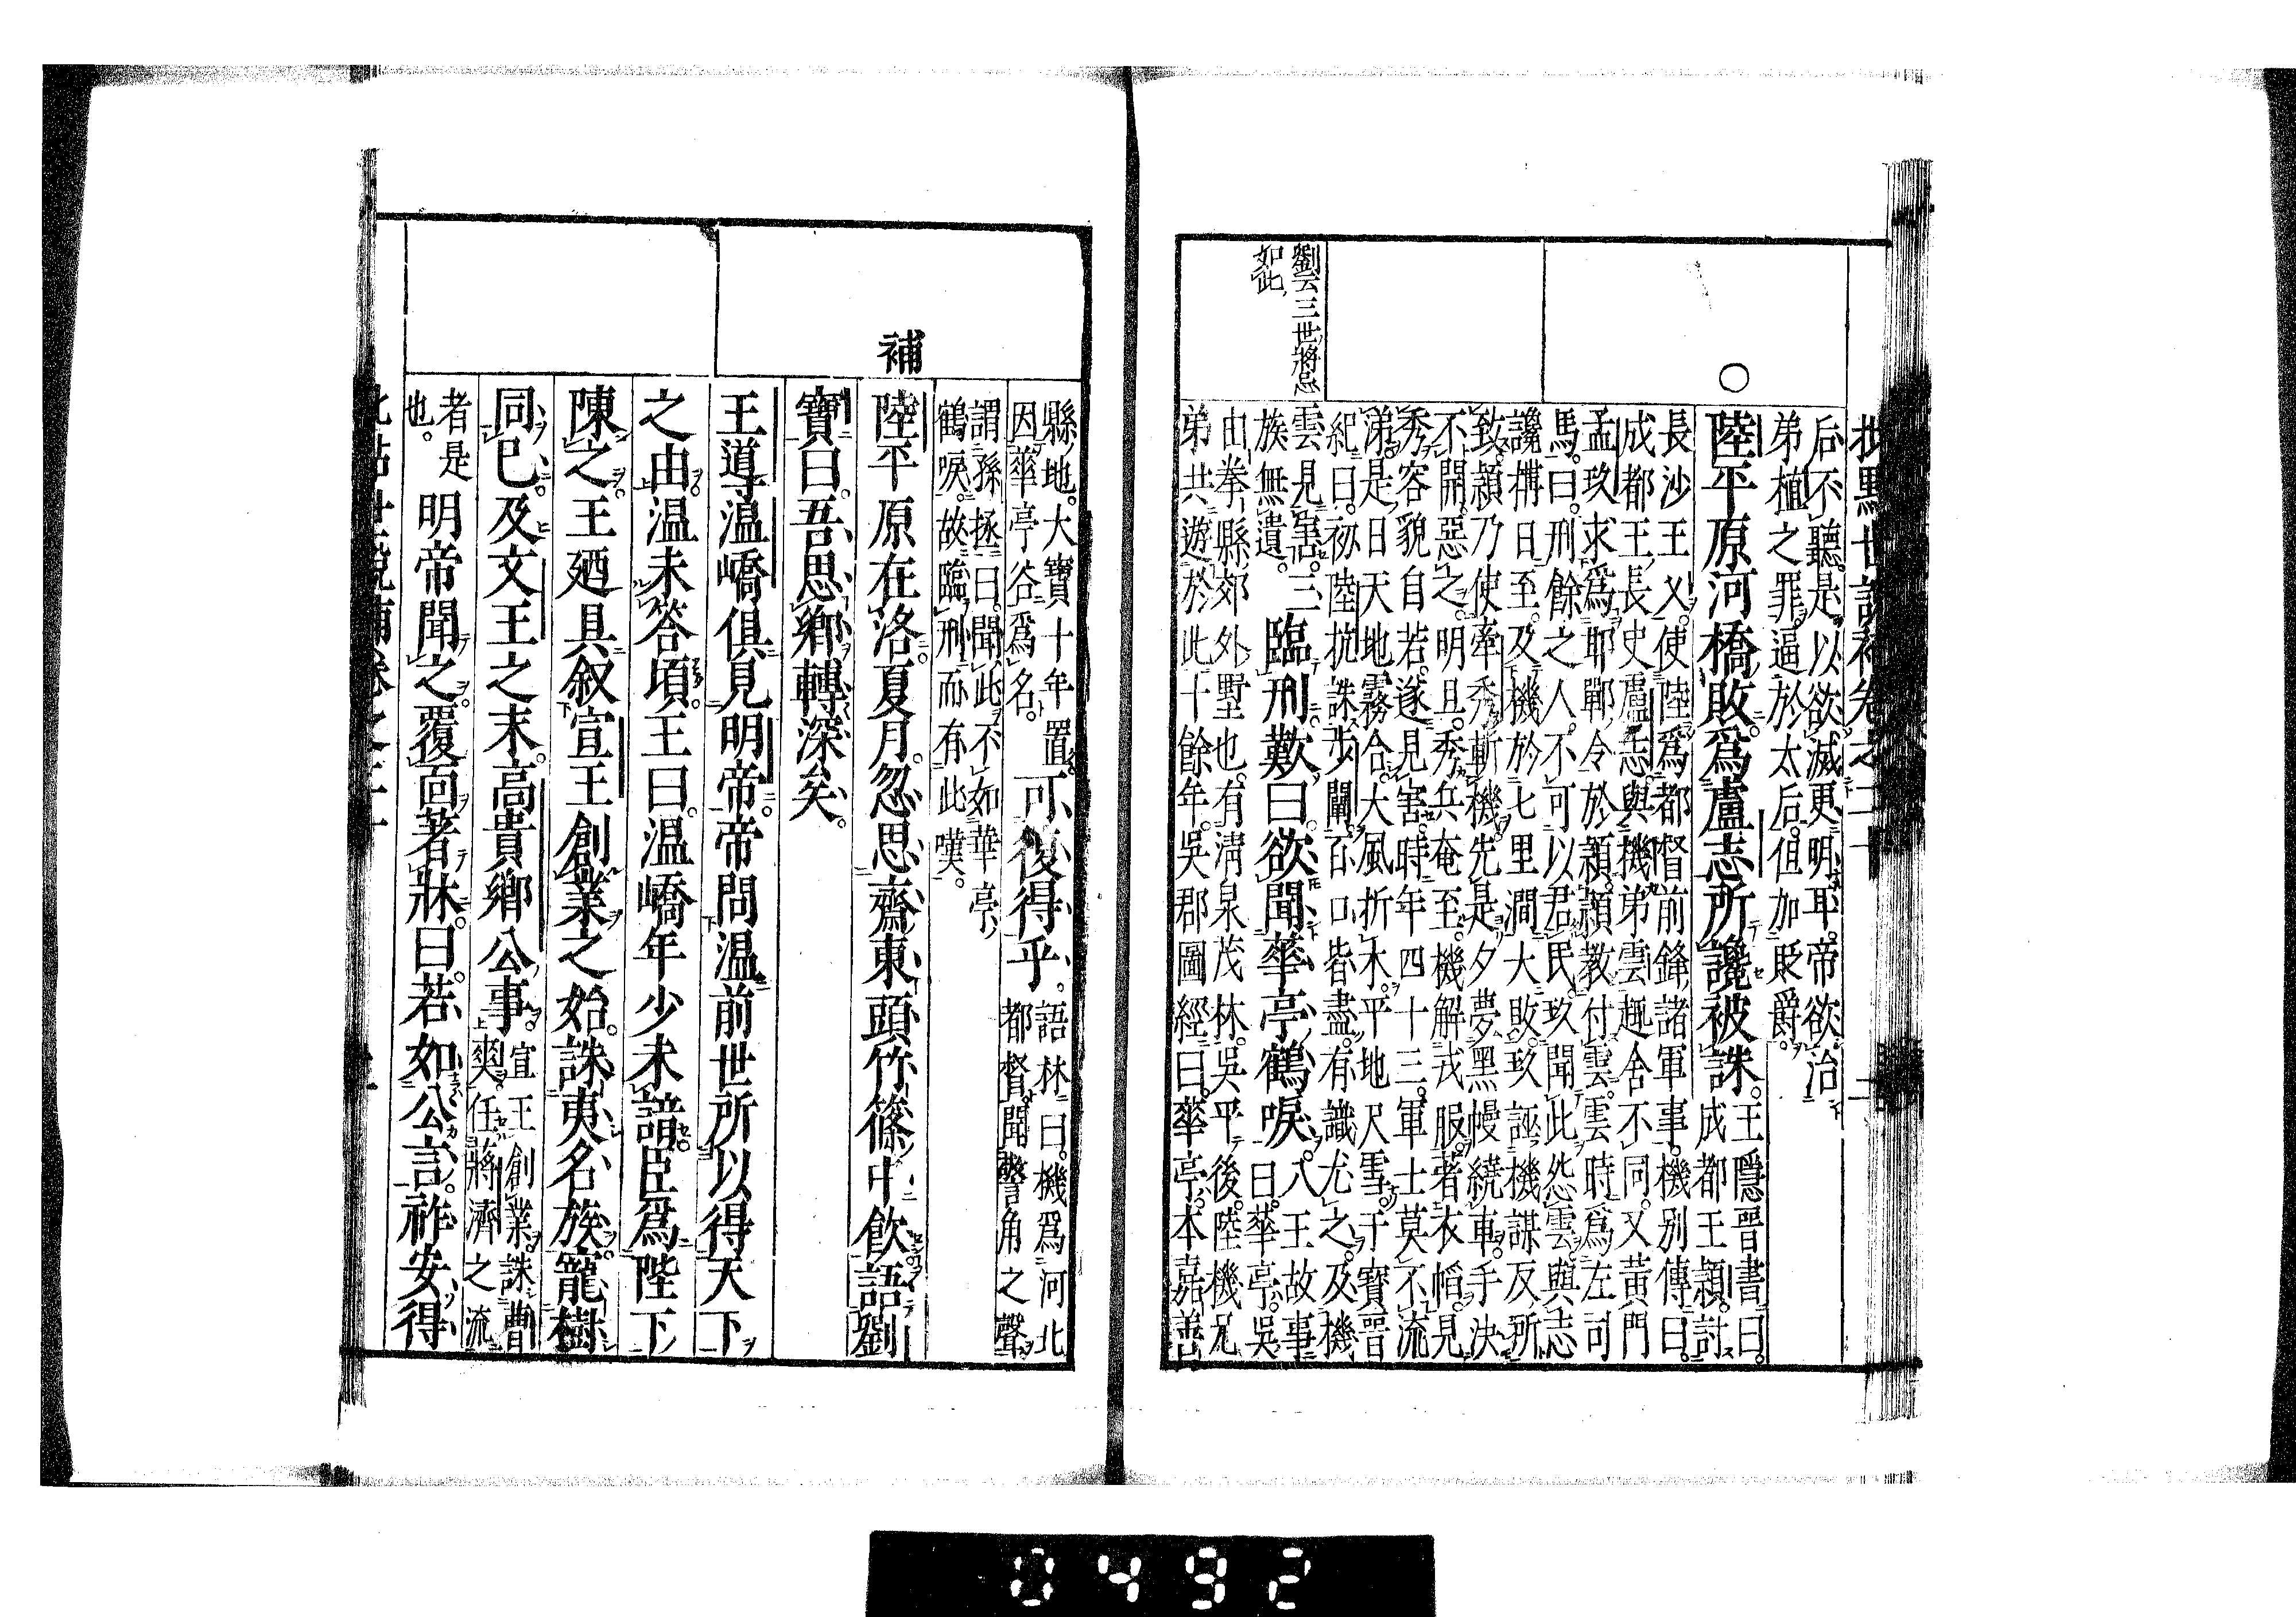 批點世說補卷之二十
二
后不聽是以欲滅更明耳帝欲治
弟植之罪逼於太后但加貶爵
○
陸平原河橋敗爲盧志所讒被誅
王隱晉書曰
成都王穎討
長沙王乂使陸爲都督前鋒諸軍事機別傳曰
成都王長史盧志與機弟雲趣舍不同又黃門
孟玖求爲耶鄲令於穎穎教付雲雲時爲左司
馬曰刑餘之人不可以君民玖聞此怨雲與志
讒搆日至及機於七里澗大敗玖誣機謀反所
致穎乃使牽秀斬機先是夕夢黑幔繞車手決
不開惡之明旦秀兵奄至機解戎服著衣幍見
秀容貌自若遂見害時年四十三軍士莫不流
涕是日天地霧合大風折木平地尺雪于寶晉
紀曰初陸抗誅步闡百口皆盡有識尤之及機
雲見害三
族無遺
臨刑歎曰欲聞華亭鶴唳
八王故事
曰華亭吳
由拳縣郊外墅也有淸泉茂林吳平後陸機兄
弟共遊於此十餘年吳郡圖經曰華亭本嘉善
劉云三世將忌
如此
縣地大寶十年置
因華亭谷爲名
可復得乎
語林曰機爲河北
都督聞警角之聲
謂孫拯曰聞此不如華亭
鶴唳故臨刑而有此嘆
補
陸平原在洛夏月忽思齋東頭竹篠中飮語劉
寶曰吾思鄉轉深矣
王導溫嶠俱見明帝帝問溫前世所以得天下
之由溫未答頃王曰溫嶠年少未諳臣爲陛下
陳之王廼具叙宣王創業之始誅夷名族寵樹
同已及文王之末高貴鄉公事
宣王創業誅曹
爽任蔣濟之流
者是
也
明帝聞之覆面著牀曰若如公言祚安得
批點世說補卷之二十